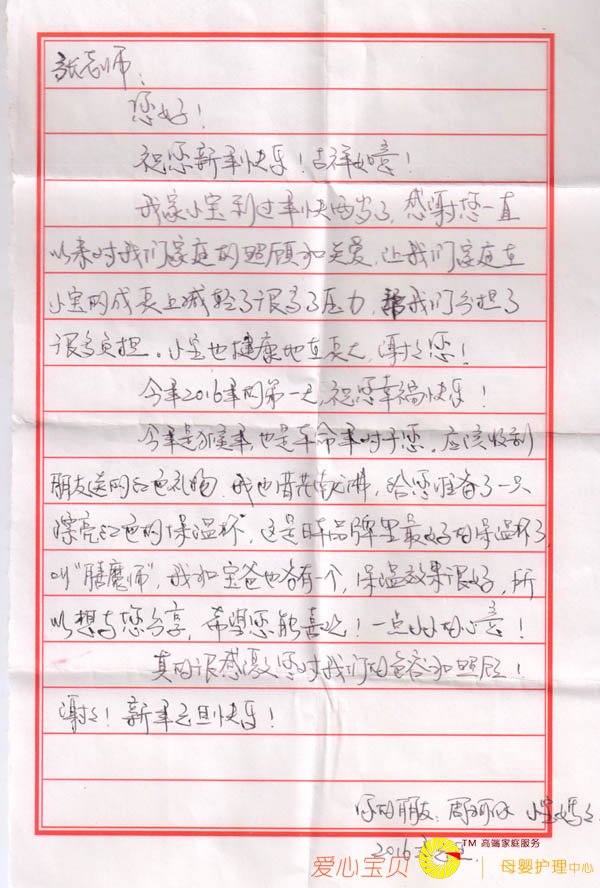 张老师:
您好!
祝您新年快乐!吉祥如意!
我家小宝到过年快两岁了,感谢您一直
以来对我们家庭的照顾和关爱,让我们家庭在
小宝的成长上减轻了很多了压力,帮我们分担了
很多负担。小宝也健康地在长大,谢谢您!
今年2016年的第一天,祝您幸福快乐!
今年是猴年,也是本命年对于您。应该收到
朋友送的红色礼物.我也借花献佛,给您准备了一只
漂亮红色的保温杯,这是日本品牌里最好的保温杯了,
叫"膳魔师",我和宝爸也各有一个,保温效果很好,所
以想与您分享,希望您能喜欢!一点小小的心意!
真的很感激您对我们的包容和照顾!
谢谢!新年元旦快乐!
你的朋友:周 小宝妈妈
2016 元旦.
爱心宝贝 TM 高端家庭服务 母婴护理中心